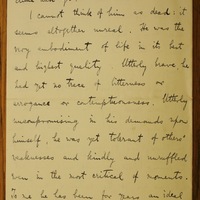 I cannot think of him as dead: it
seems altogether unreal. He was the
very embodiment of life in its best
and highest quality. Utterly brave he
had yet no trace of bitterness or
arrogance or contemptuousness. Utterly
uncompromising in his demands upon
himself, he was yet tolerant of others'
weaknesses and kindly and unruffled
even in the most critical of moments.
To me he has been for years an ideal